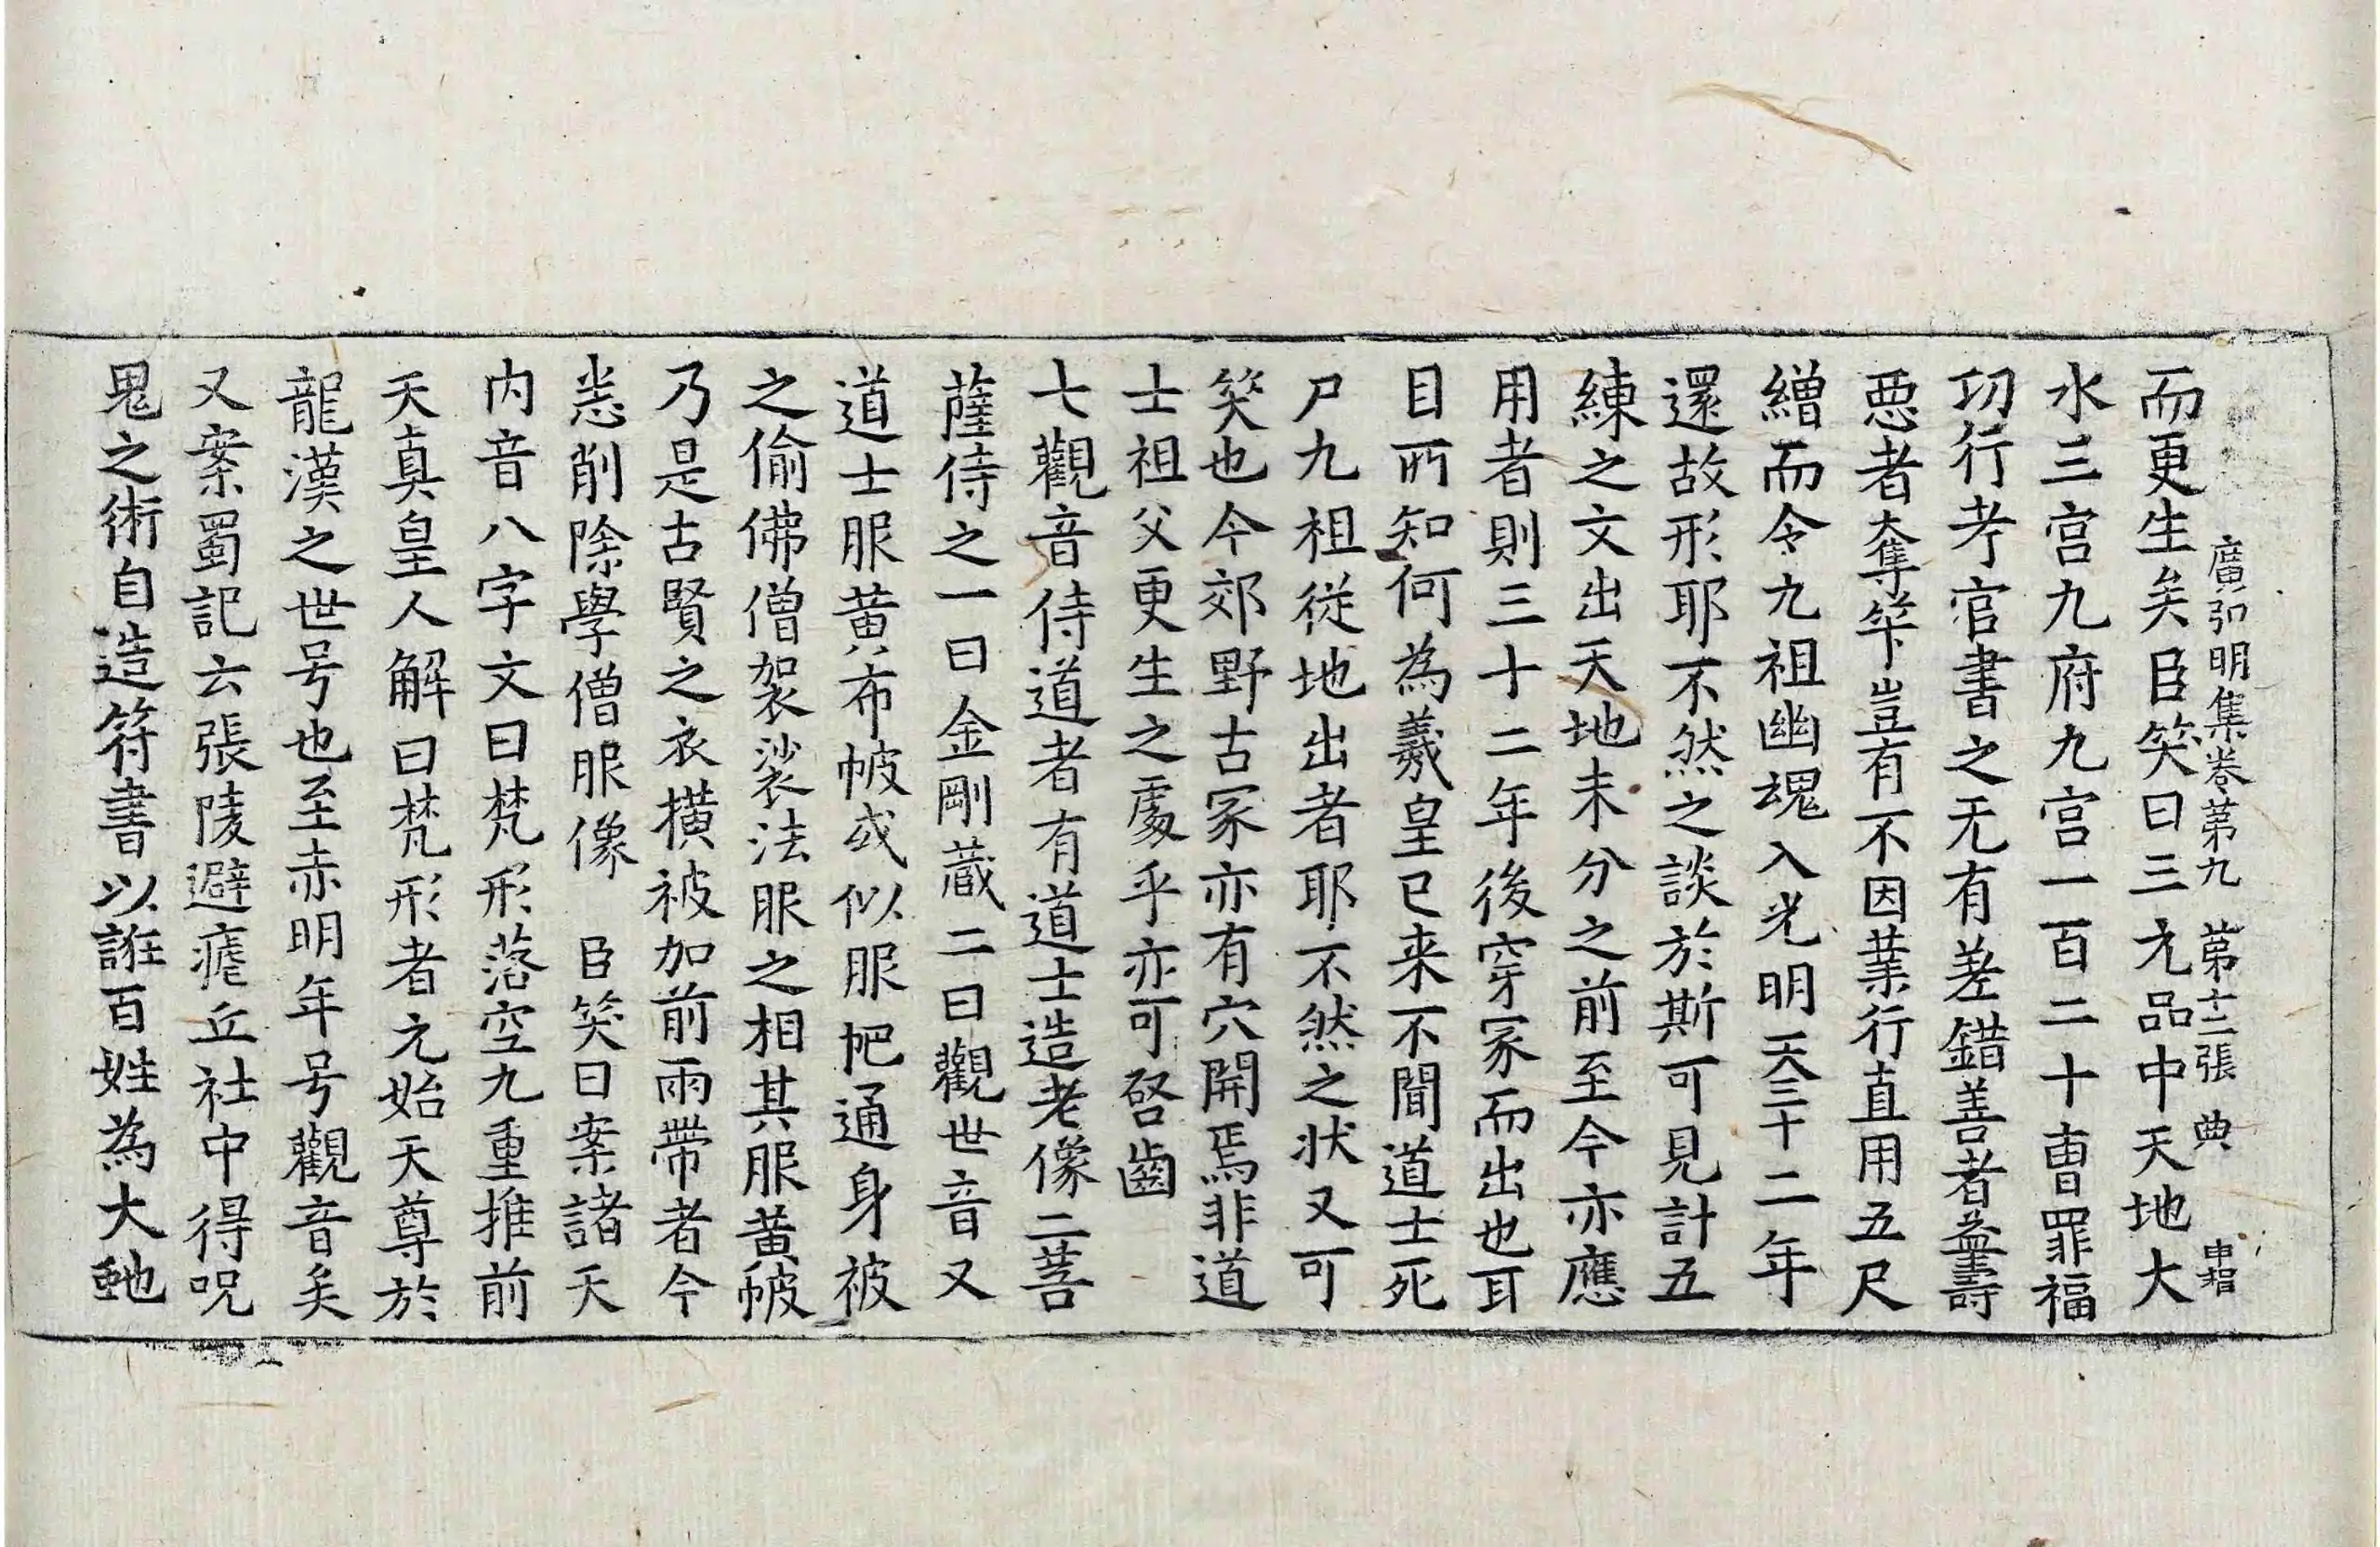 廣弘明集卷第九 第十二張 典 申楷
而更生矣臣笑曰三元品中天地大
水三官九府九宫一百二十曺罪福
功行考官書之无有差錯善者益壽
惡者奪筭豈有不因業行直用五尺
繒而令九祖幽魂入光明天三十二年
還故形耶不然之談於斯可見計五
練之文出天地未分之前至今亦應
用者則三十二年後穿冢而出也耳
目所知何為羲皇已来不聞道士死
尸九祖從地出者耶不然之狀又可
笑也今郊野古冢亦有穴開焉非道
士祖父更生之處乎亦可啓齒
七觀音侍道者有道士造老像二菩
薩侍之一曰金剛蔵二曰觀世音又
道士服黄布帔或似服帊通身被
之偷佛僧袈裟法服之相其服黄帔
乃是古賢之衣横被加前兩帶者今
悉削除學僧服像 臣笑曰案諸天
内音八字文曰梵形落空九重推前
天真皇人解曰梵形者元始天尊於
龍漢之世号也至赤明年号觀音矣
又案蜀記云張陵避瘧丘社中得呪
鬼之術自造符書以誑百姓為大虵